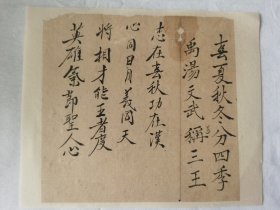 春夏秋冬分四季
禹湯文武稱三王
志在春秋功在漢
心同日月義同天
將相才能王者度
英雄氣節聖人心